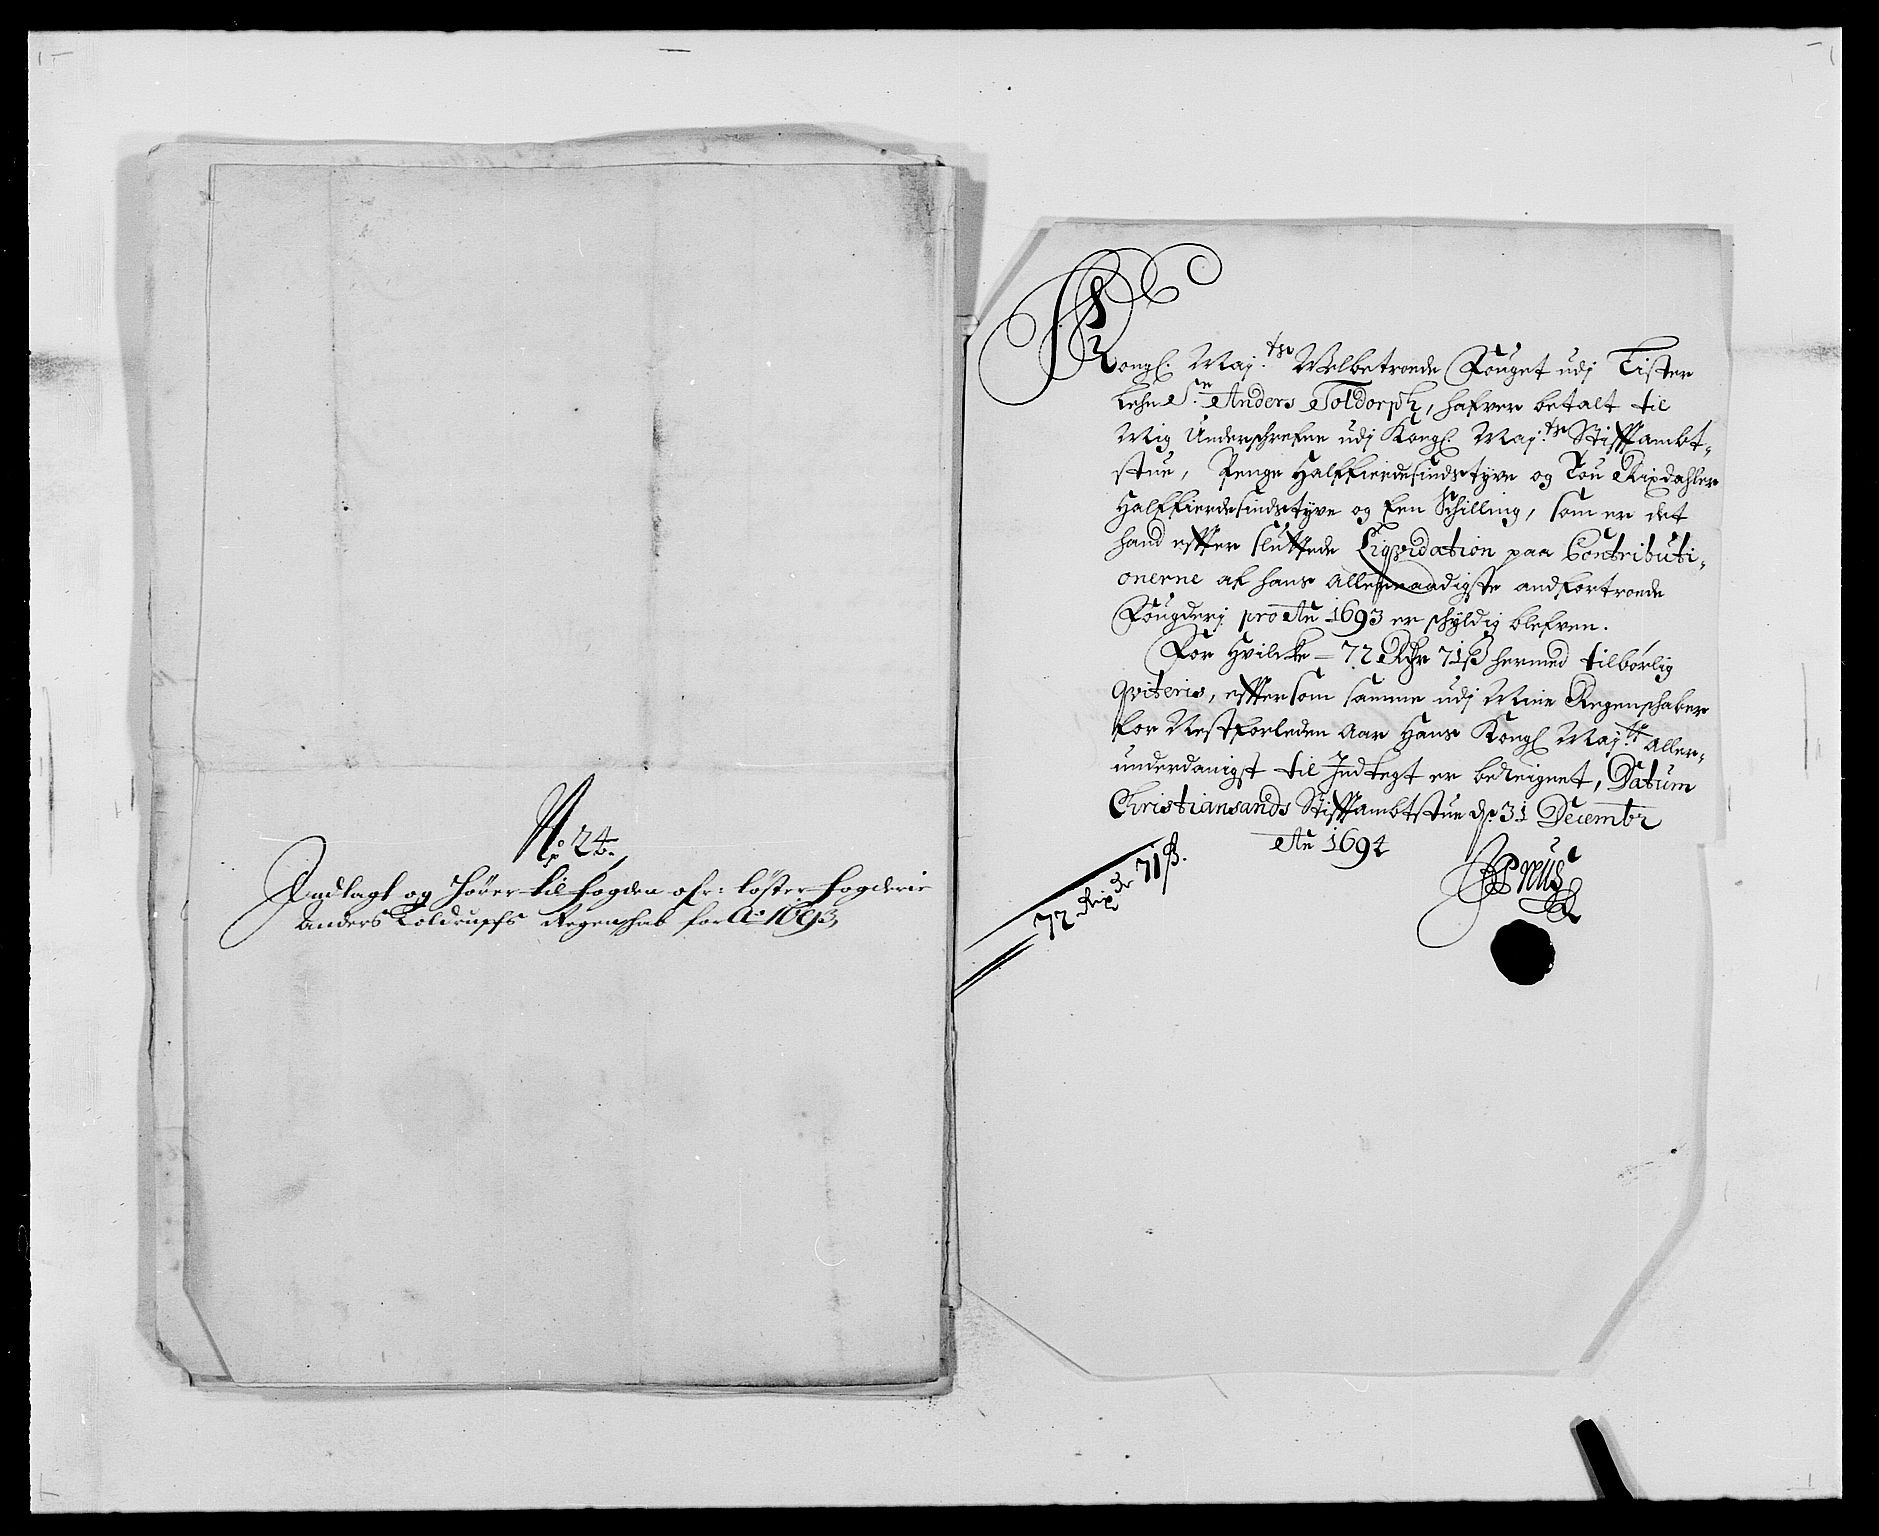 No 24.
Indlagt og hører til fogden ofr: Lister fogderie
Anders Toldrupfs Regenschab for Ao 1693,
Kongl. Maj.ts Velbetroede Fouget udj Lister
Lehn Sr. Anders Toldorph, hafver betalt til
Mig Underschrefne udj Kongl. Maj.ts Stifftambt-
stue, Penge Halffierdesindstyve og Tou Rixdahler
Halffierdesindstyve og Een Schilling, som er det
hand effter sluttede Liqvidation paa Contributi-
onerne af hans allernaadigste andfortroede
Fougderj pro Ao 1693 er schyldig blefven.
For Hvilcke - 72 Rdr 71 ß hermed tilbørlig
qviteris, effter som samme udj Mine Regenschaber
for Nestforleden Aar Hans Kongl Maj.tt Aller-
underdanigst til Indtegt er bereignet, Datum
Christiansands Stifftambtstue d. 31 Decembr
Ao 1694
72 Rixdr 71 ß.